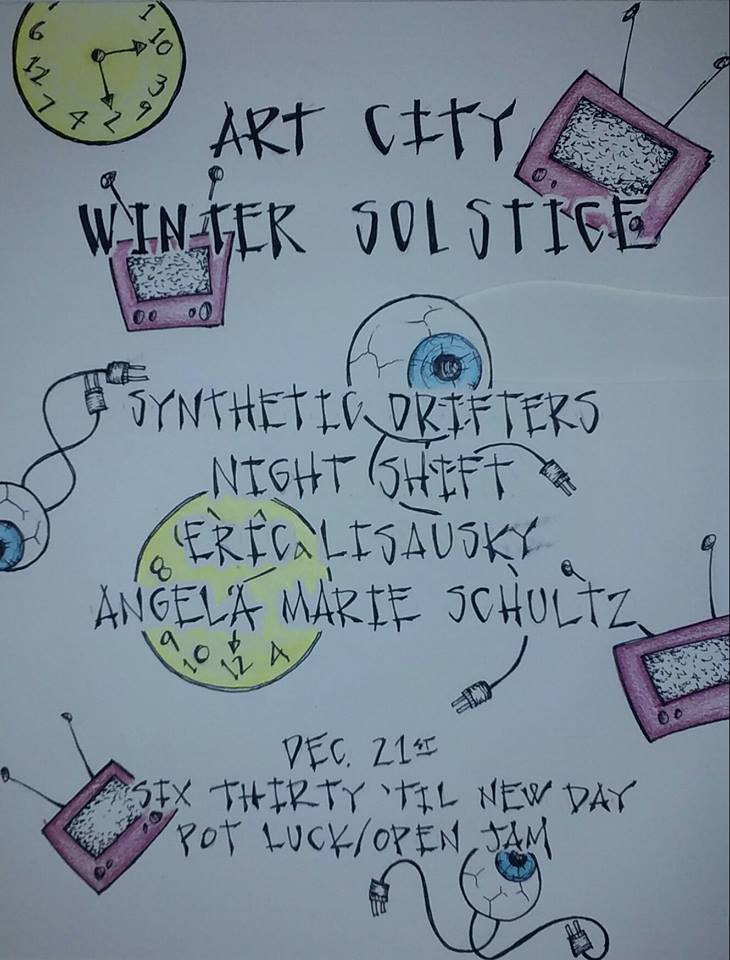 6 1
10
12 3
7 4 2 9
ART CITY
WINTER SOLSTICE
SYNTHETIC DRIFTERS
NIGHT SHIFT
ERIC LISAUSKY
8
ANGELA MARIE SCHULTZ
9 10 12 4
DEC. 21ST
SIX THIRTY 'TIL NEW DAY
POT LUCK/OPEN JAM